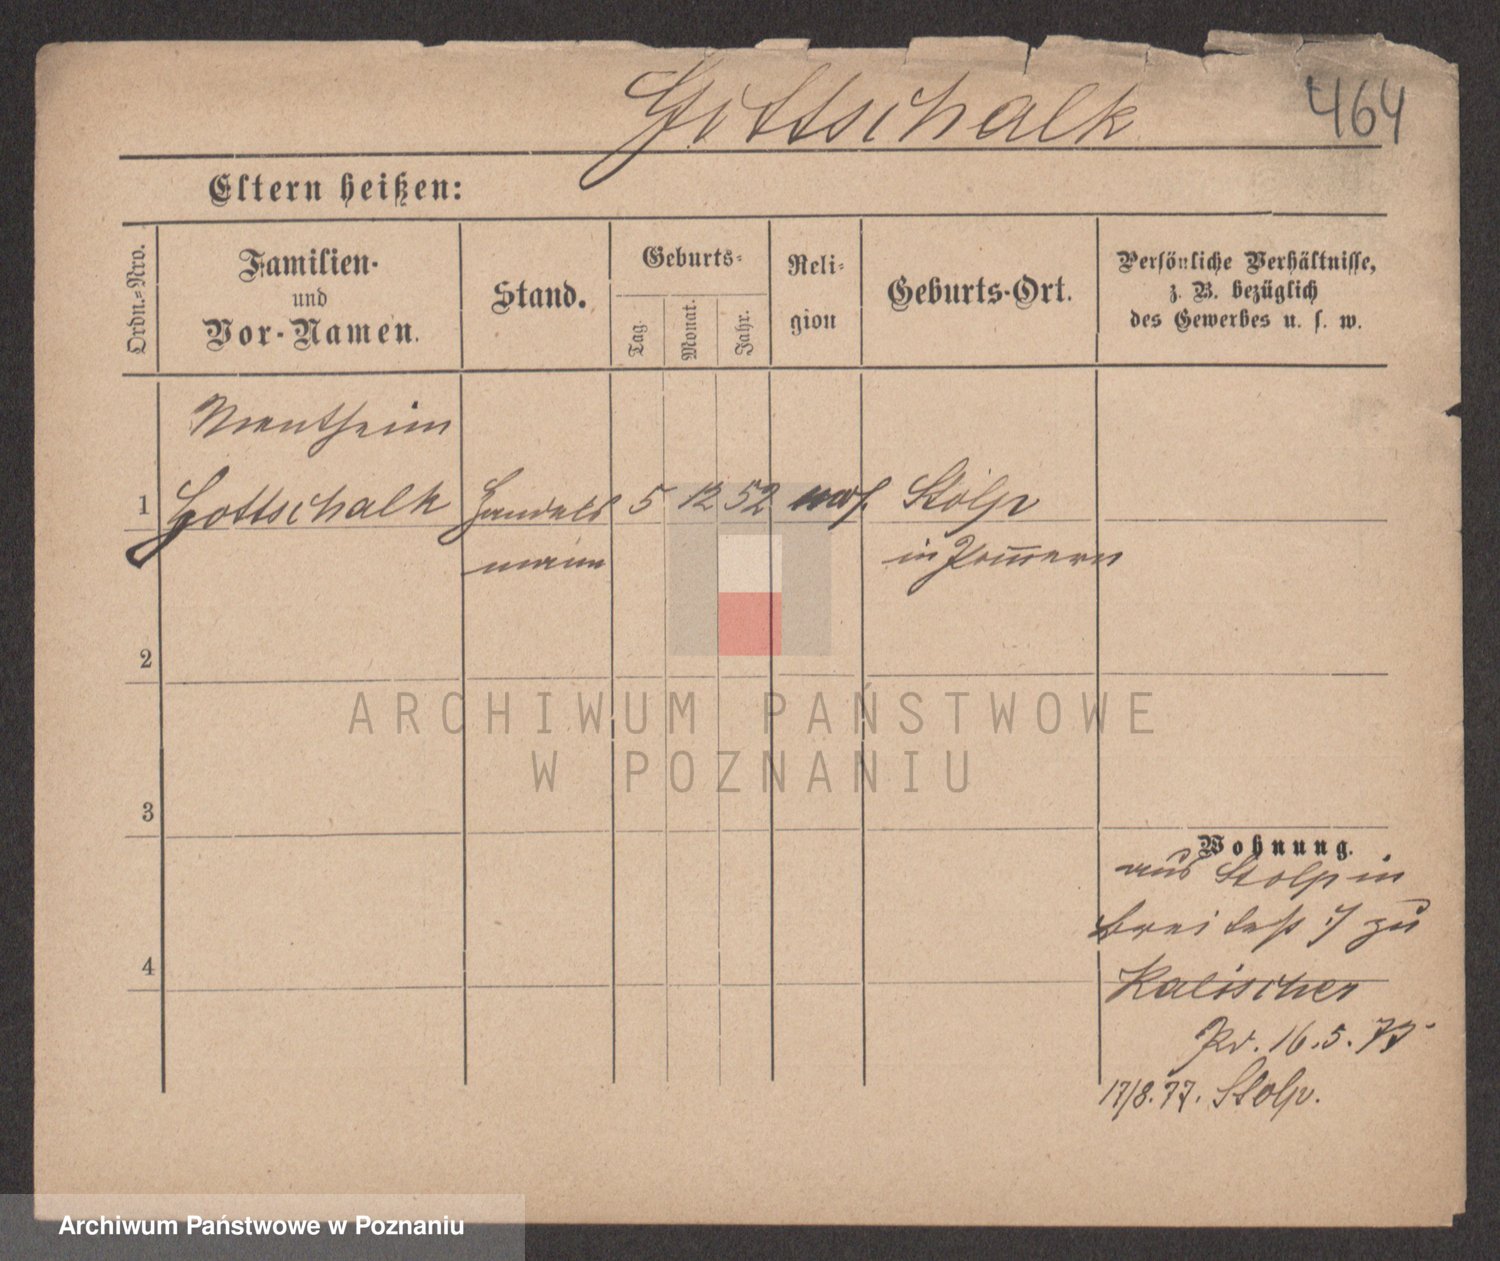 Gottschalk
464
Eltern heißen:
Ordn.-Nro.
Familien-
und
Vor-Namen.
Stand.
Geburts-
Tag.
Monat.
Jahr.
Reli-
gion
Geburts-Ort.
Persönliche Verhältnisse,
z. B. bezüglich
des Gewerbes u. s. w.
1 Gottschalk Handels 5 12 52 mos. Stolp
mann in Pommern
2
ARCHIWUM PAŃSTWOWE
W POZNANIU
3
Wohnung.
aus Stolp in
zu
Kalischer
16.5.77
4
17/8.77. Stolp.
Archiwum Państwowe w Poznaniu